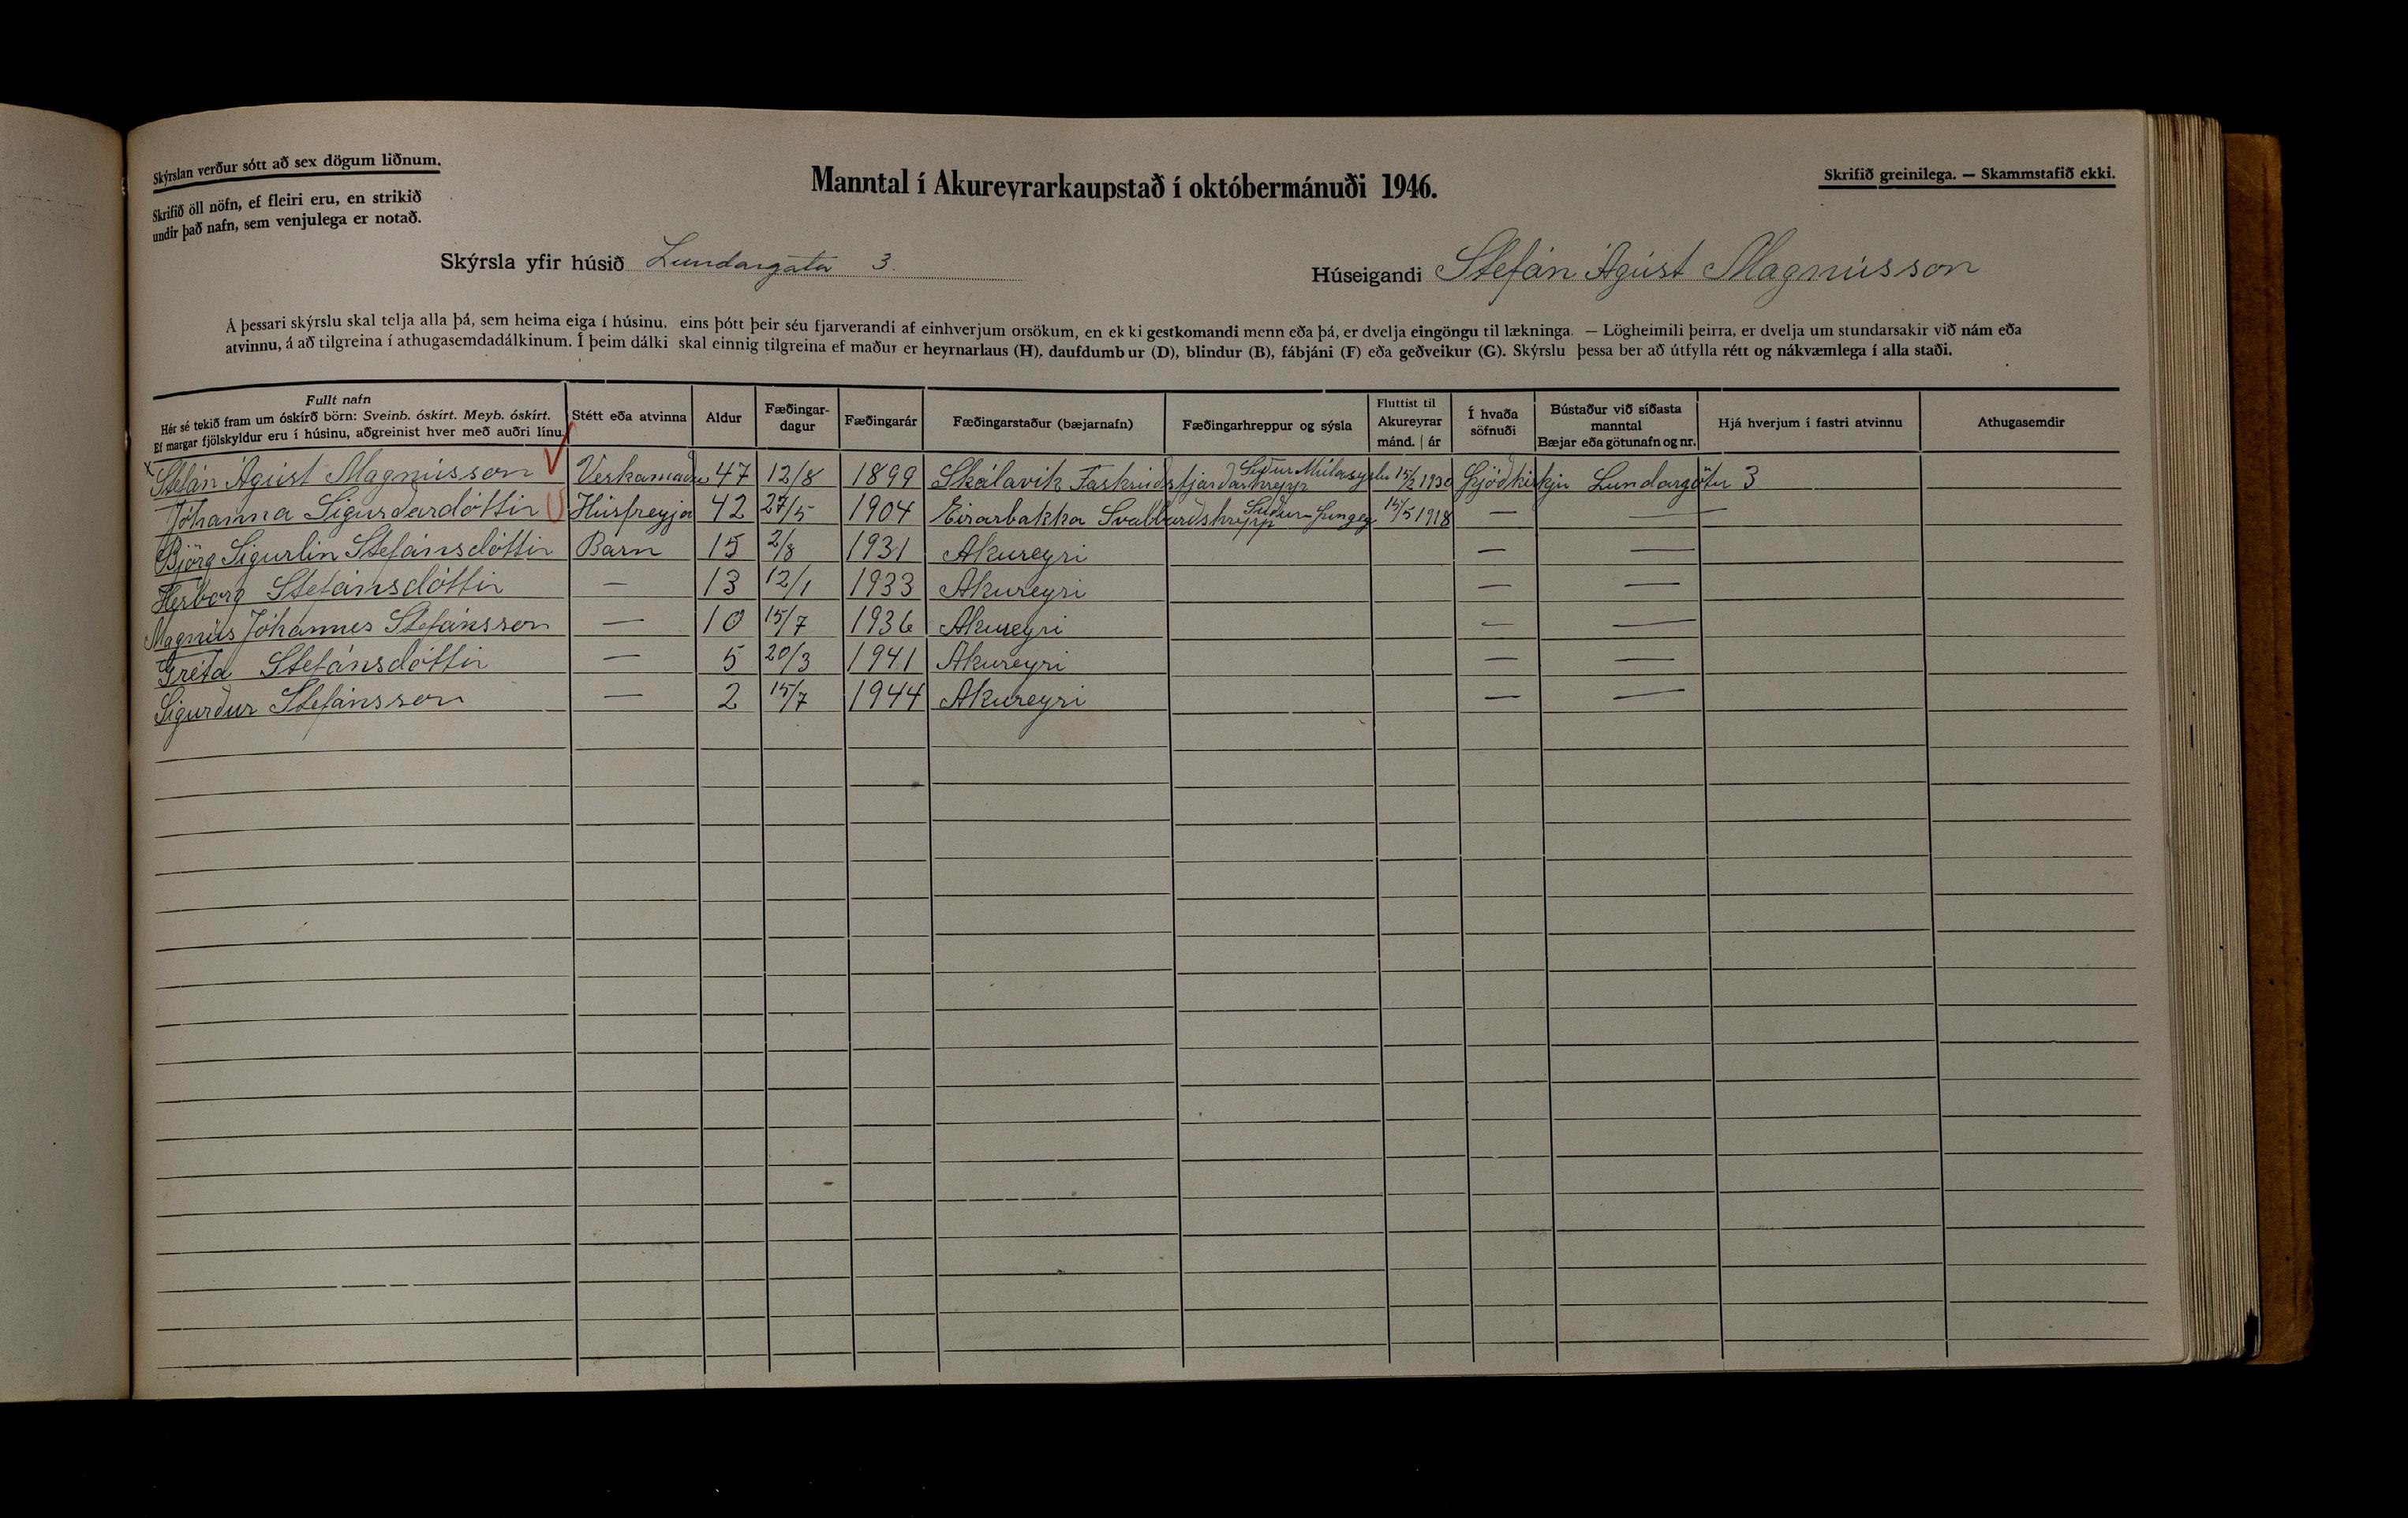 Skýrslan verður sótt að sex dögum liðnum.
Skrifið öll nöfn, ef fleiri eru, en strikið
undir það nafn, sem venjulega er notað.
Manntal í Akureyrarkaupstað í októbermánuði 1946.
Skrifið greinilega. — Skammstafið ekki.
Skýrsla yfir húsið Lundargata 3.
Húseigandi Stefán Ágúst Magnússon
Á þessari skýrslu skal telja alla þá, sem heima eiga í húsinu, eins þótt þeir séu fjarverandi af einhverjum orsökum, en ekki gestkomandi menn eða þá, er dvelja eingöngu til lækninga. — Lögheimili þeirra, er dvelja um stundarsakir við nám eða
atvinnu, á að tilgreina í athugasemdadálkinum. Í þeim dálki skal einnig tilgreina ef maður er heyrnarlaus (H), daufdumbur (D), blindur (B), fábjáni (F) eða geðveikur (G). Skýrslu þessa ber að útfylla rétt og nákvæmlega í alla staði.
Fullt nafn
Hér sé tekið fram um óskírð börn: Sveinb. óskírt. Meyb. óskírt.
Ef margar fjölskyldur eru í húsinu, aðgreinist hver með auðri línu.
Stétt eða atvinna
Aldur
Fæðingar-
dagur
Fæðingarár
Fæðingarstaður (bæjarnafn)
Fæðingarhreppur og sýsla
Fluttist til
Akureyrar
mánd. | ár
Í hvaða
söfnuði
Bústaður við síðasta
manntal
Bæjar eða götunafn og nr.
Hjá hverjum í fastri atvinnu
Athugasemdir
x Stefán Ágúst Magnússon Verkamaður 47 12/8 1899 Skálavik Fáskrúðsfjarðarhrepp Suður Múlasyslu 15/2 1930 Þjóðkirkju Lundargötu 3
Jóhanna Sigurðardóttir Húsfreyja 42 27/5 1904 Eirarbakka Svalbarðshrepp Suður-Þingey 15/5 1918 — —
Björg Sigurlín Stefánsdóttir Barn 15 2/8 1931 Akureyri — —
Herborg Stefánsdóttir — 13 12/1 1933 Akureyri — —
Magnús Jóhannes Stefánsson — 10 15/7 1936 Akureyri — —
Gréta Stefánsdóttir — 5 20/3 1941 Akureyri — —
Sigurður Stefánsson — 2 15/7 1944 Akureyri — —